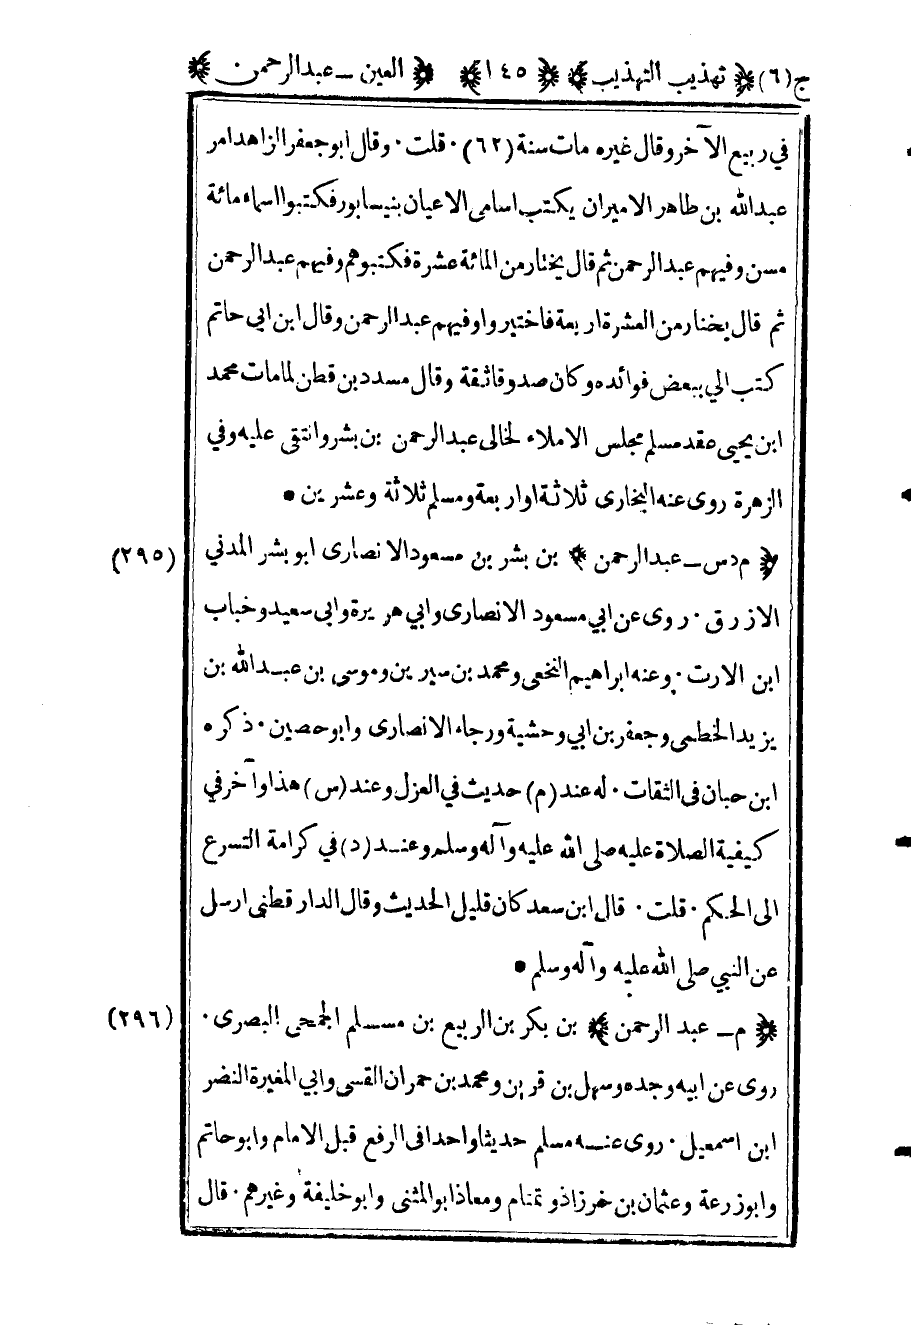 ج(٦) ﴿ تهذيب التهذيب ﴾ ﴿ ١٤٥ ﴾ ﴿ العين - عبدالرحمن ﴾
في ربيع الآخر وقال غيره مات سنة (٦٢)٠ قلت٠ وقال ابو جعفر الزاهد امر
عبدالله بن طاهر الامير ان يكتب اسامى الاعيان بنيسابور فكتبوا اسماء مائة
مسن وفيهم عبدالرحمن ثم قال يختار من المائة عشرة فكتبوهم وفيهم عبدالرحمن
ثم قال يختار من العشرة اربعة فاختيروا وفيهم عبدالرحمن وقال ابن ابي حاتم
كتب الي ببعض فوائده وكان صدوقا ثقة وقال مسدد بن قطن لما مات محمد
ابن يحيى عقد مسلم مجلس الاملاء لخالى عبدالرحمن بن بشر وانتقى عليه وفي
الزهرة روى عنه البخارى ثلاثة او اربعة ومسلم ثلاثة وعشرين ●
﴿ م د س - عبدالرحمن ﴾ بن بشر بن مسعود الانصارى ابو بشر المدني (٢٩٥)
الازرق٠ روى عن ابي مسعود الانصارى وابي هريرة وابى سعيد وخباب
ابن الارت٠ وعنه ابراهيم النخعى ومحمد بن سيرين وموسى بن عبدالله بن
يزيد الخطمى وجعفر بن ابي وحشية ورجاء الانصارى وابو حصين٠ ذكره
ابن حبان فى الثقات٠ له عند (م) حديث في العزل وعند (س) هذا وآخر في
كيفية الصلاة عليه صلى الله عليه وآله وسلم وعند (د) في كرامة التسرع
الى الحكم٠ قلت٠ قال ابن سعد كان قليل الحديث وقال الدارقطنى ارسل
عن النبي صلى الله عليه وآله وسلم ●
﴿ م - عبد الرحمن ﴾ بن بكر بن الربيع بن مسلم الجمحى البصرى٠ (٢٩٦)
روى عن ابيه وجده وسهل بن قرين ومحمد بن حمران القسى وابي المغيرة النضر
ابن اسمعيل٠ روى عنه مسلم حديثا واحدا فى الرفع قبل الامام وابو حاتم
وابو زرعة وعثمان بن خرزاذ وتمنام ومعاذ ابو المثنى وابو خليفة وغيرهم٠ قال